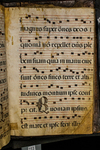 magnus super omnes deos
quoniam non repellet dns ple
bem suam quia in manu eius
sunt omnes fines terre et alti
tudines montium ipse conspi
cit Quoniam ipsius
est mare et ipse fecit il